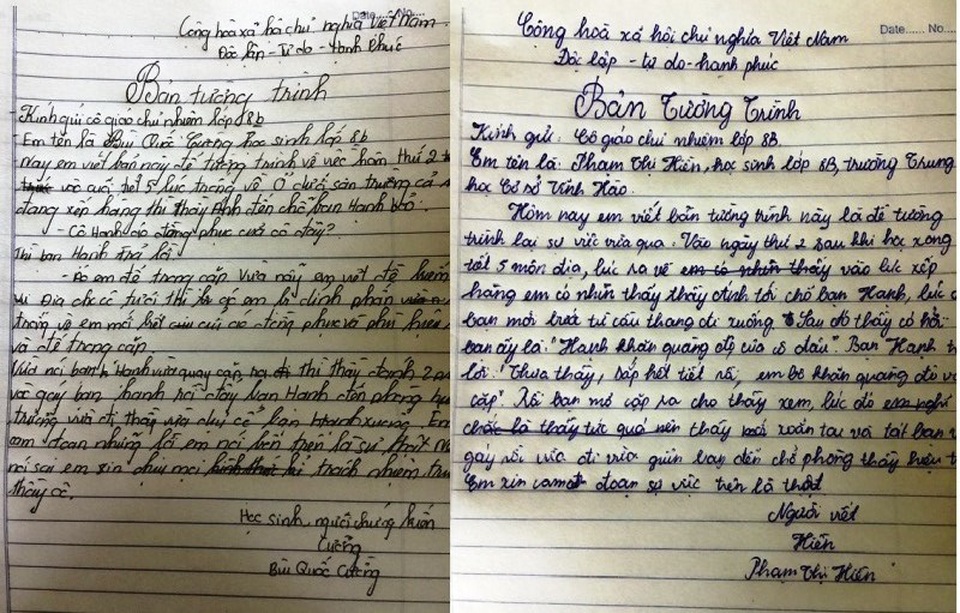 Date......No....
Cộng hoà xã hội chủ nghĩa Việt Nam
Độc lập - Tự do - Hạnh Phúc
Bản tường trình
Kính gửi cô giáo chủ nhiệm lớp 8b
Em tên là Bùi Quốc Cường Học sinh lớp 8b
Nay em viết bản này để tường trình về việc hôm thứ 2
vào cuối tiết 5 lúc trống về Ở dưới sân trường cả
đang xếp hàng thì thầy đến chỗ bạn Hạnh
- Cô Hạnh đồng phục cưới cô đây?
Thì bạn Hạnh trả lời
em để trong cặp vừa nãy em viết để
trống về em mới đồng phục và phù hiệu
và để trong cặp.
Vừa nói bạn Hạnh vừa quay cặp thì thầy đánh 2
vào gáy bạn Hạnh rồi đẩy bạn Hạnh đến phòng
trưởng vừa đi thầy vừa xuống. Em
cam đoan những lời em nói bên trên là sự thật
nói sai em xin chịu mọi trách nhiệm
thầy cô.
Học sinh người chứng kiến
Cường
Bùi Quốc Cường
Date...... No....
Cộng hoà xã hội chủ nghĩa Việt Nam
Độc lập - tự do - hạnh phúc
Bản Tường Trình
Kính gửi: Cô giáo chủ nhiệm lớp 8B.
Em tên là: Phạm Thị Hiền, học sinh lớp 8B, trường Trung
học Cơ sở Vĩnh Hảo.
Hôm nay em viết bản tường trình này là để tường
trình lại sự việc vừa qua. Vào ngày thứ 2 sau khi học xong
tiết 5 môn địa, lúc ra về em có nhìn thấy vào lúc xếp
hàng em có nhìn thấy thầy tới chỗ bạn Hạnh, lúc
bạn mới bước từ cầu thang đi xuống. Sau đó thầy có hỏi
bạn ấy là: "Hạnh khăn quàng đỏ của cô đâu". Bạn Hạnh
lời: "Thưa thầy, sắp hết tiết rồi, em bỏ khăn quàng đỏ
cặp" Rồi bạn mở cặp ra cho thầy xem, lúc đó em nghĩ
chắc là thầy tức quá nên thầy xoắn tay và tát bạn
gáy rồi vừa đi vừa bạn đến chỗ phòng thầy hiệu
Em xin cam đoan sự việc trên là thật
Người viết
Hiền
Phạm Thị Hiền